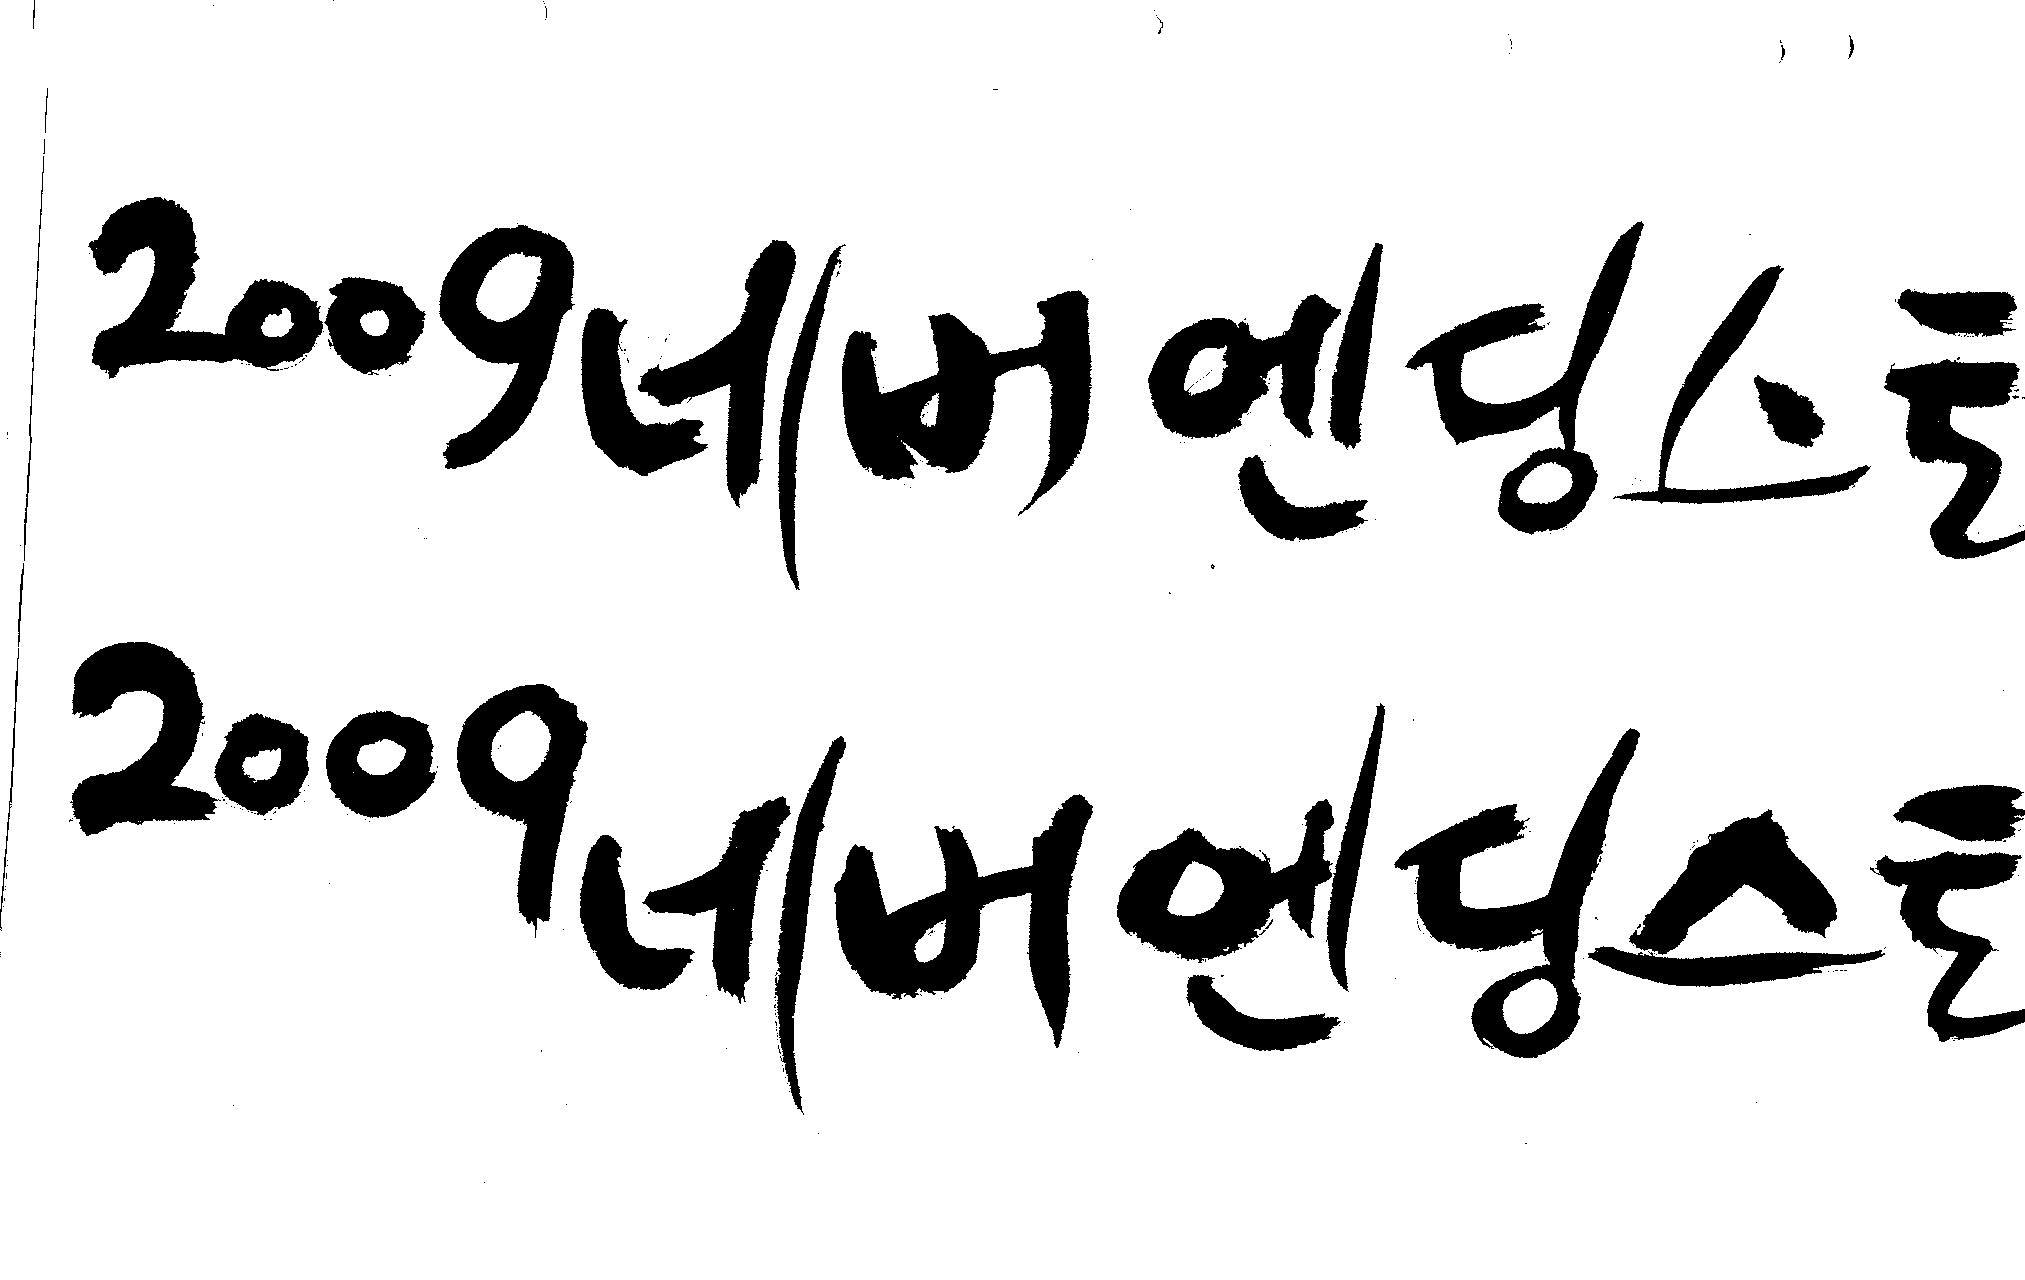 2009 네버엔딩스토
2009 네버엔딩스토